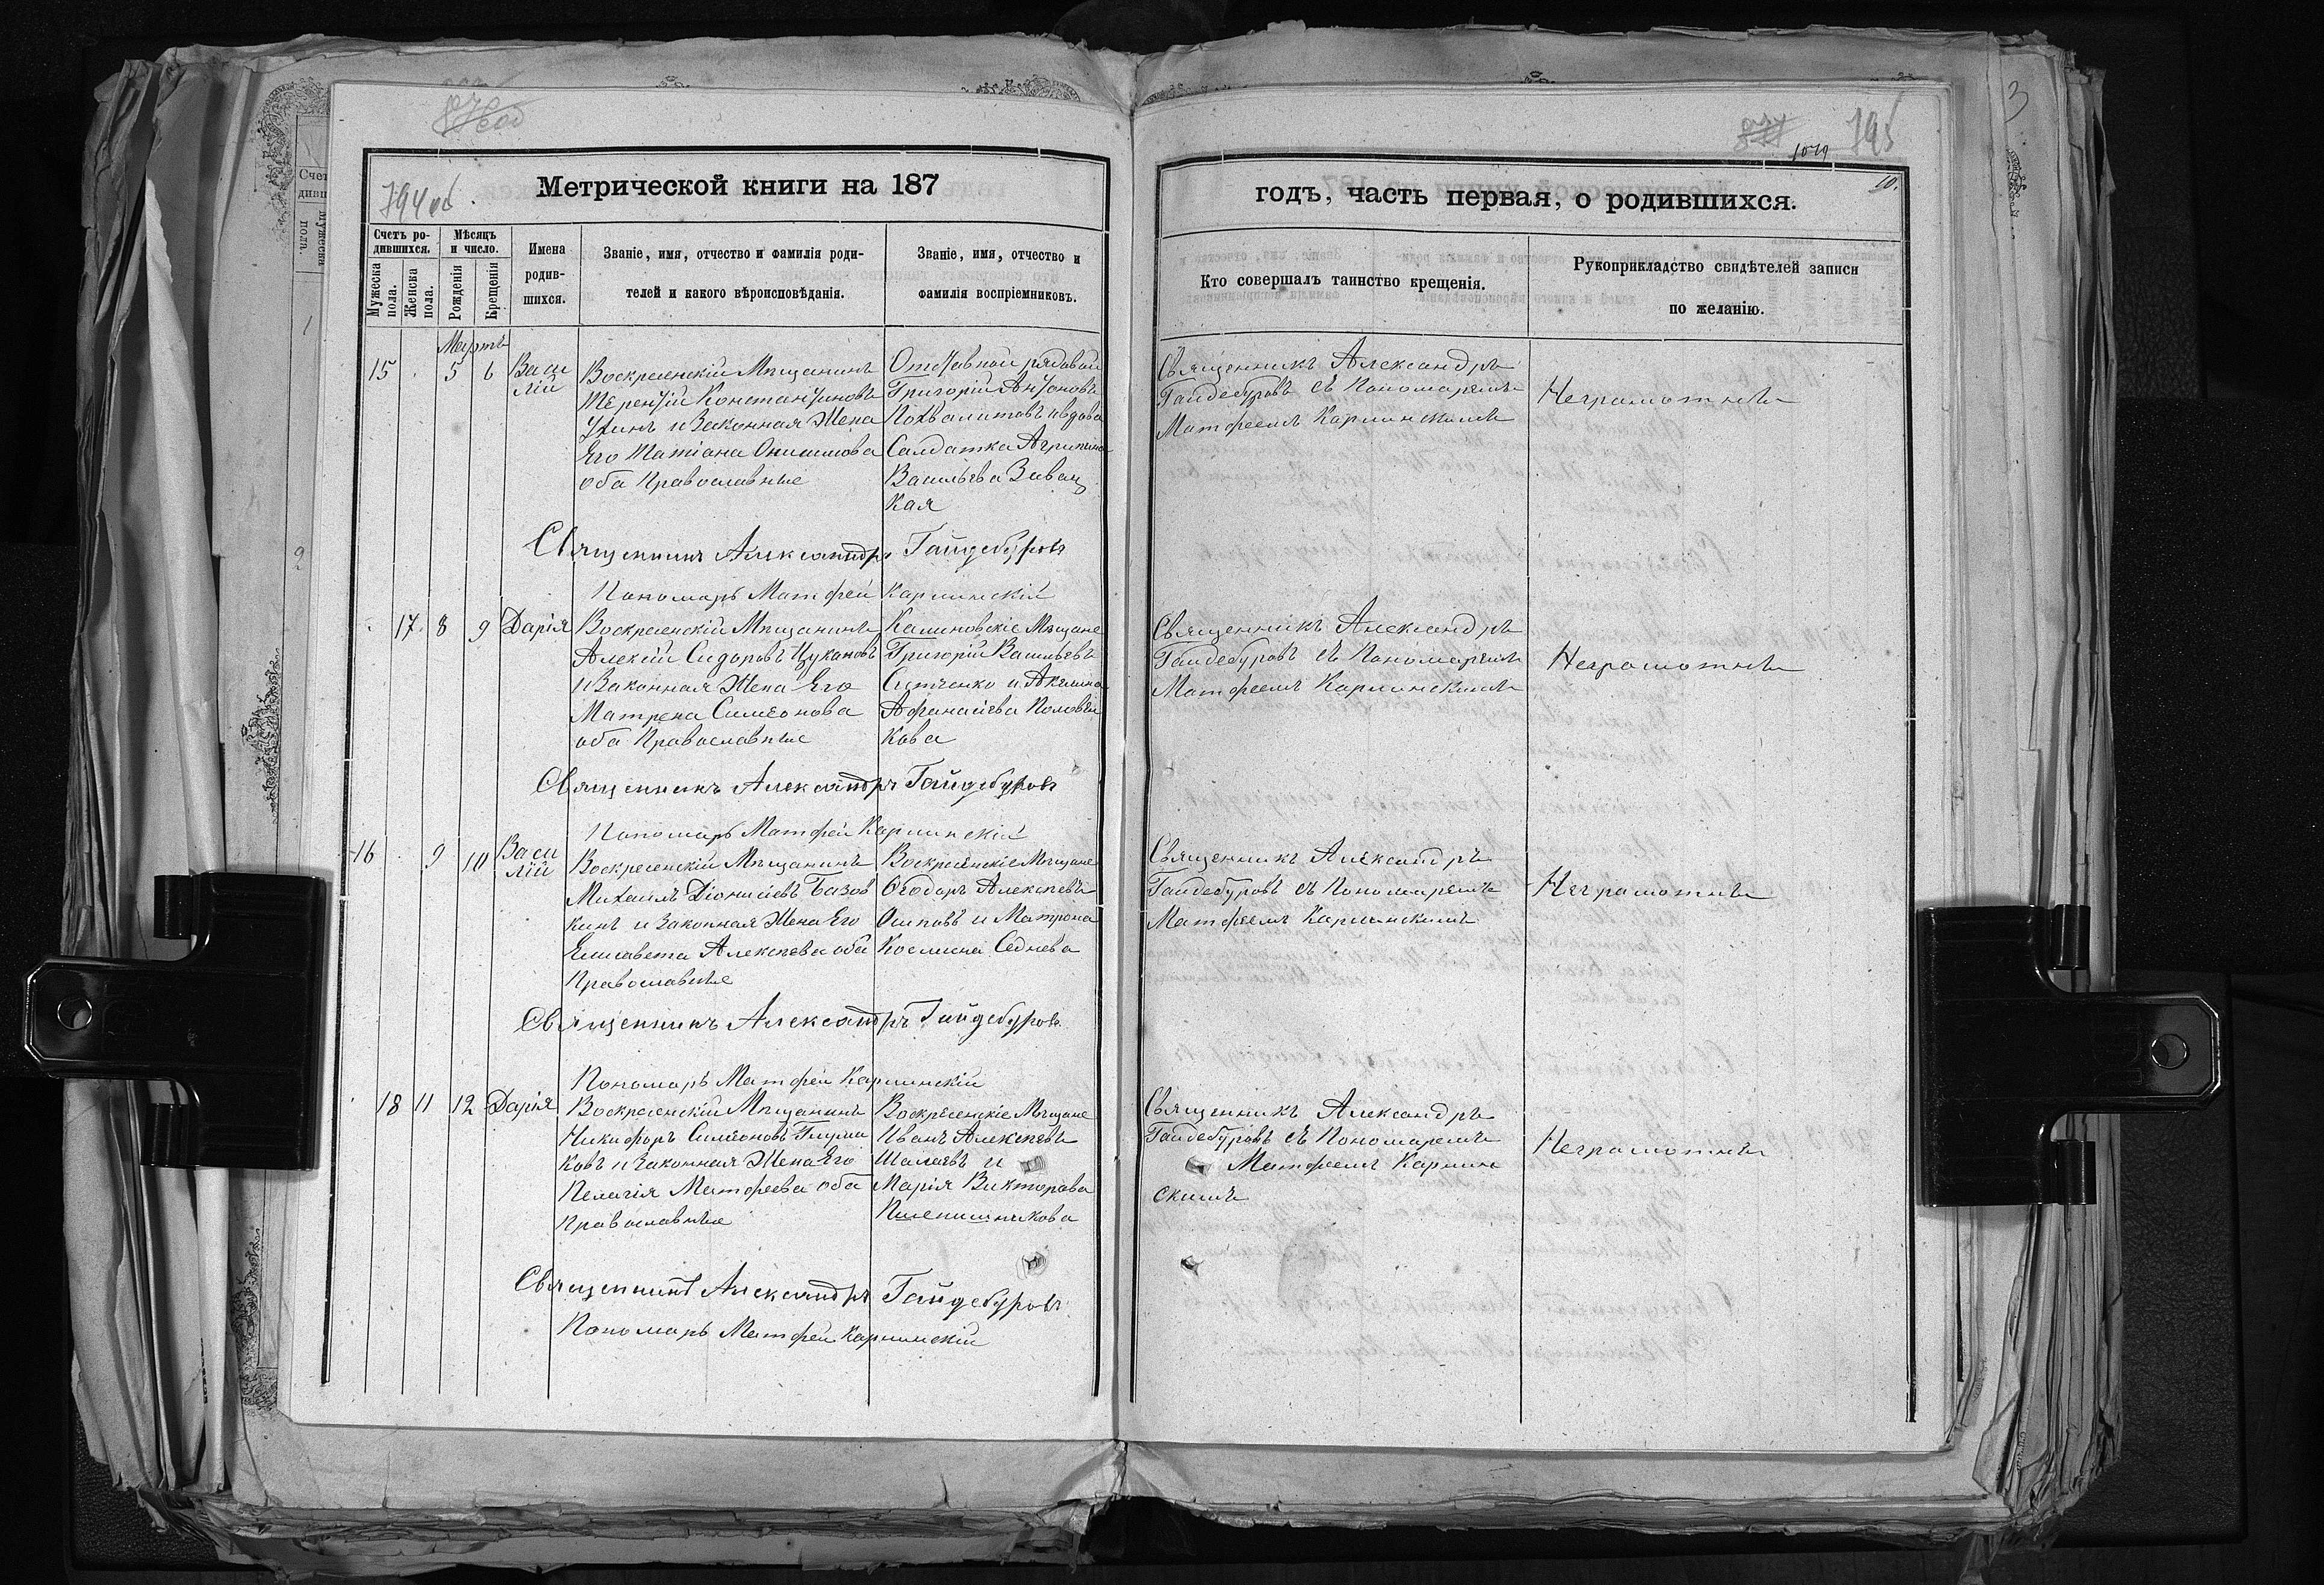 794 об.
Метрической книги на 187
Счетъ ро-
дившихся.
Мѣсяцъ
и число.
Имена
родив-
шихся.
Званіе, имя, отчество и фамилія роди-
телей и какого вѣроисповѣданія.
Званіе, имя, отчество и
фамилія воспріемниковъ.
Мужеска
пола.
Женска
пола.
Рожденія
Крещенія
Мартъ
15 . 5 6
Васи
лій
Воскресенскій Мѣщанинъ
Терентій Константиновъ
и Законная Жена
Его Татіана Онисимова
оба Православные
Отставной рядовой
Григорій Антоновъ
Похвалитовъ и вдова
Салдатка Агрипина
Васильева
кая
Священникъ Александръ Гайдебуровъ
Пономарь Матфей Карпинскій
. 17. 8 9
Дарія
Воскресенскій Мѣщанинъ
Алексій Сидоровъ Цукановъ
и Законная Жена Его
Матрена Симеонова
оба Православные
Калиновскіе Мѣщане
Григорій Васильевъ
и Акилина
Афанасіева Половин
кова
Священникъ Александръ Гайдебуровъ
Пономарь Матфей Карпинскій
16 . 9 10
Васи
лій
Воскресенскій Мѣщанинъ
Михаилъ Діонисіевъ Базов
кинъ и Законная Жена Его
Елисавета Алексѣева оба
Православные
Воскресенскіе Мѣщане
Ѳеодоръ Алексѣевъ
Осиповъ и Матрона
Космина Седнева
Священникъ Александръ Гайдебуровъ
Пономарь Матфей Карпинскій
. 18 11 12
Дарія
Воскресенскій Мѣщанинъ
Никифоръ Симеоновъ
ковъ и Законная Жена Его
Пелагія Матфеева оба
Православные
Воскресенскіе Мѣщане
Иванъ Алексѣевъ
Шалаевъ и
Марія Викторова
Пшенишникова
Священникъ Александръ Гайдебуровъ
Пономарь Матфей Карпинскій
795
1019
10.
годъ, часть первая, о родившихся.
Кто совершалъ таинство крещенія.
Рукоприкладство свидѣтелей записи
по желанію.
Священникъ Александръ
Гайдебуровъ съ Пономаремъ
Матфеемъ Карпинскимъ
Неграмотны
Священникъ Александръ
Гайдебуровъ съ Пономаремъ
Матфеемъ Карпинскимъ
Неграмотны
Священникъ Александръ
Гайдебуровъ съ Пономаремъ
Матфеемъ Карпинскимъ
Неграмотны
Священникъ Александръ
Гайдебуровъ съ Пономаремъ
Матфеемъ Карпин
скимъ
Неграмотны
3
Счет
дивш
Мужеска
пола.
1
2